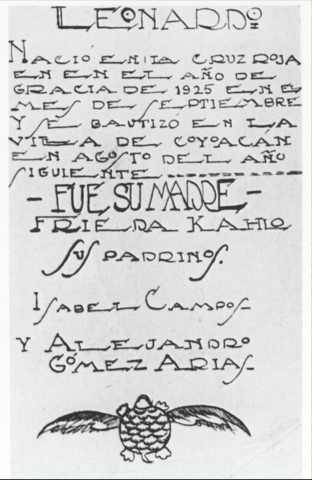 LEONARDO
NACIO EN LA CRUZ ROJA
EN EN EL AÑO DE
GRACIA DE 1925 EN E
MES DE SEPTIEMBRE
Y SE BAUTIZO EN LA
VILLA DE COYOACÁN
EN AGOSTO DEL AÑO
SIGUIENTE
- FUÉ SU MADRE -
FRIEDA KAHLO
SUS PADRINOS.
ISABEL CAMPOS
Y ALEJANDRO
GÓMEZ ARIAS